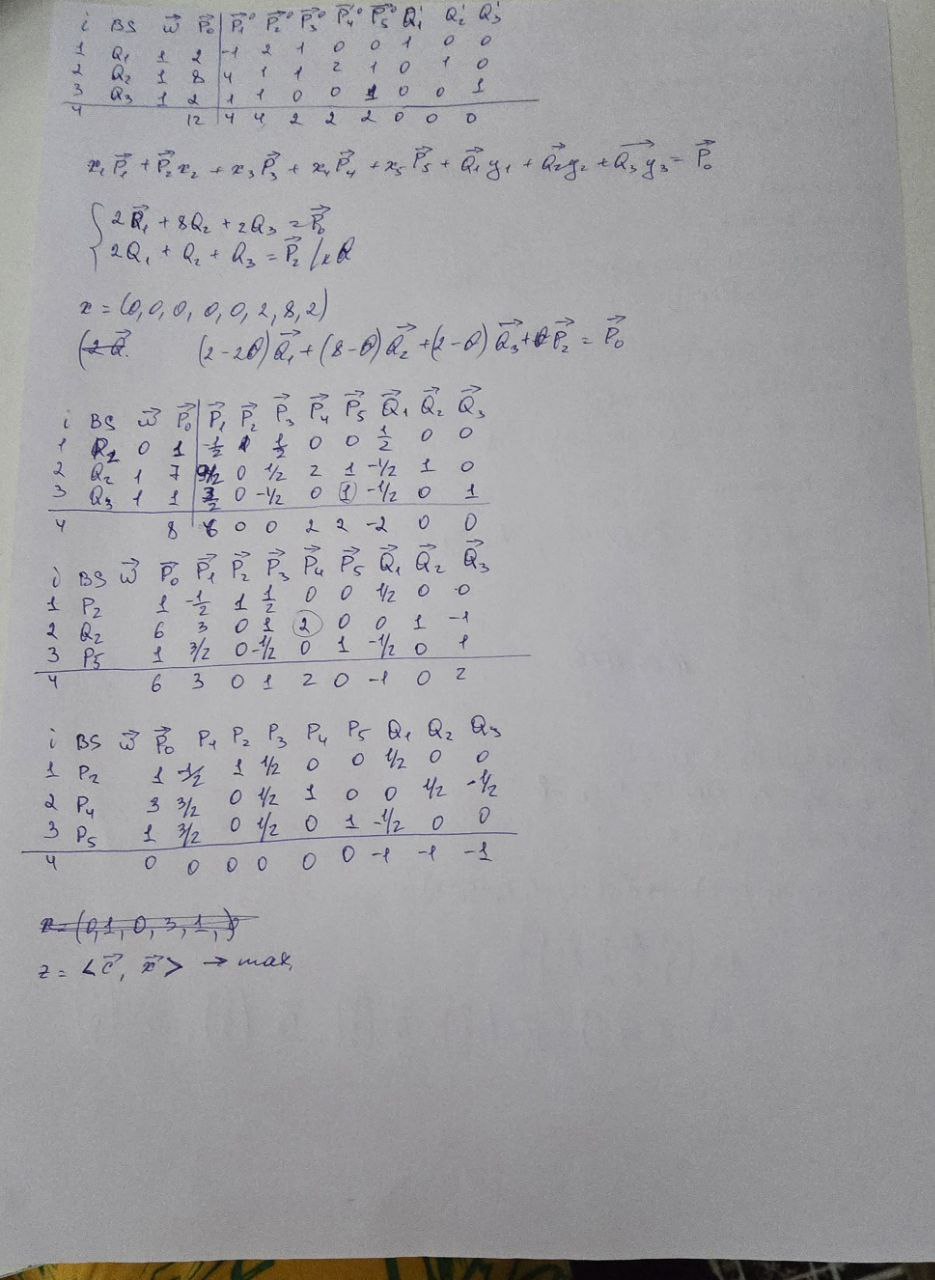 i BS w⃗ P⃗₀ P⃗₁⁰ P⃗₂⁰ P⃗₃⁰ P⃗₄⁰ P⃗₅⁰ Q₁' Q₂' Q₃'
1 Q₁ 1 2 -1 2 1 0 0 1 0 0
2 Q₂ 1 8 4 1 1 2 1 0 1 0
3 Q₃ 1 2 1 1 0 0 1 0 0 1
4 12 4 4 2 2 2 0 0 0
x₁P⃗₁ + P⃗₂x₂ + x₃P⃗₃ + x₄P⃗₄ + x₅P⃗₅ + Q⃗₁y₁ + Q⃗₂y₂ + Q⃗₃y₃ = P⃗₀
{ 2Q⃗₁ + 8Q₂ + 2Q₃ = P⃗₀
2Q₁ + Q₂ + Q₃ = P⃗₂ /xθ
x = (0, 0, 0, 0, 0, 2, 8, 2)
(2Q⃗. (2-2θ)Q⃗₁ + (8-θ)Q⃗₂ + (2-θ)Q⃗₃ + θP⃗₂ = P⃗₀
i BS w⃗ P⃗₀ P⃗₁ P⃗₂ P⃗₃ P⃗₄ P⃗₅ Q⃗₁ Q⃗₂ Q⃗₃
1 P₂ 0 1 -1/2 1 1/2 0 0 1/2 0 0
2 Q₂ 1 7 9/2 0 1/2 2 1 -1/2 1 0
3 Q₃ 1 1 3/2 0 -1/2 0 1 -1/2 0 1
4 8 6 0 0 2 2 -2 0 0
i BS w⃗ P⃗₀ P⃗₁ P⃗₂ P⃗₃ P⃗₄ P⃗₅ Q⃗₁ Q⃗₂ Q⃗₃
1 P₂ 1 -1/2 1 1/2 0 0 1/2 0 0
2 Q₂ 6 3 0 1 2 0 0 1 -1
3 P₅ 1 3/2 0 -1/2 0 1 -1/2 0 1
4 6 3 0 1 2 0 -1 0 2
i BS w⃗ P⃗₀ P₁ P₂ P₃ P₄ P₅ Q₁ Q₂ Q₃
1 P₂ 1 -1/2 1 1/2 0 0 1/2 0 0
2 P₄ 3 3/2 0 1/2 1 0 0 1/2 -1/2
3 P₅ 1 3/2 0 1/2 0 1 -1/2 0 0
4 0 0 0 0 0 0 -1 -1 -1
x = (0, 1, 0, 3, 1, )
z = <c⃗, x⃗> → max,